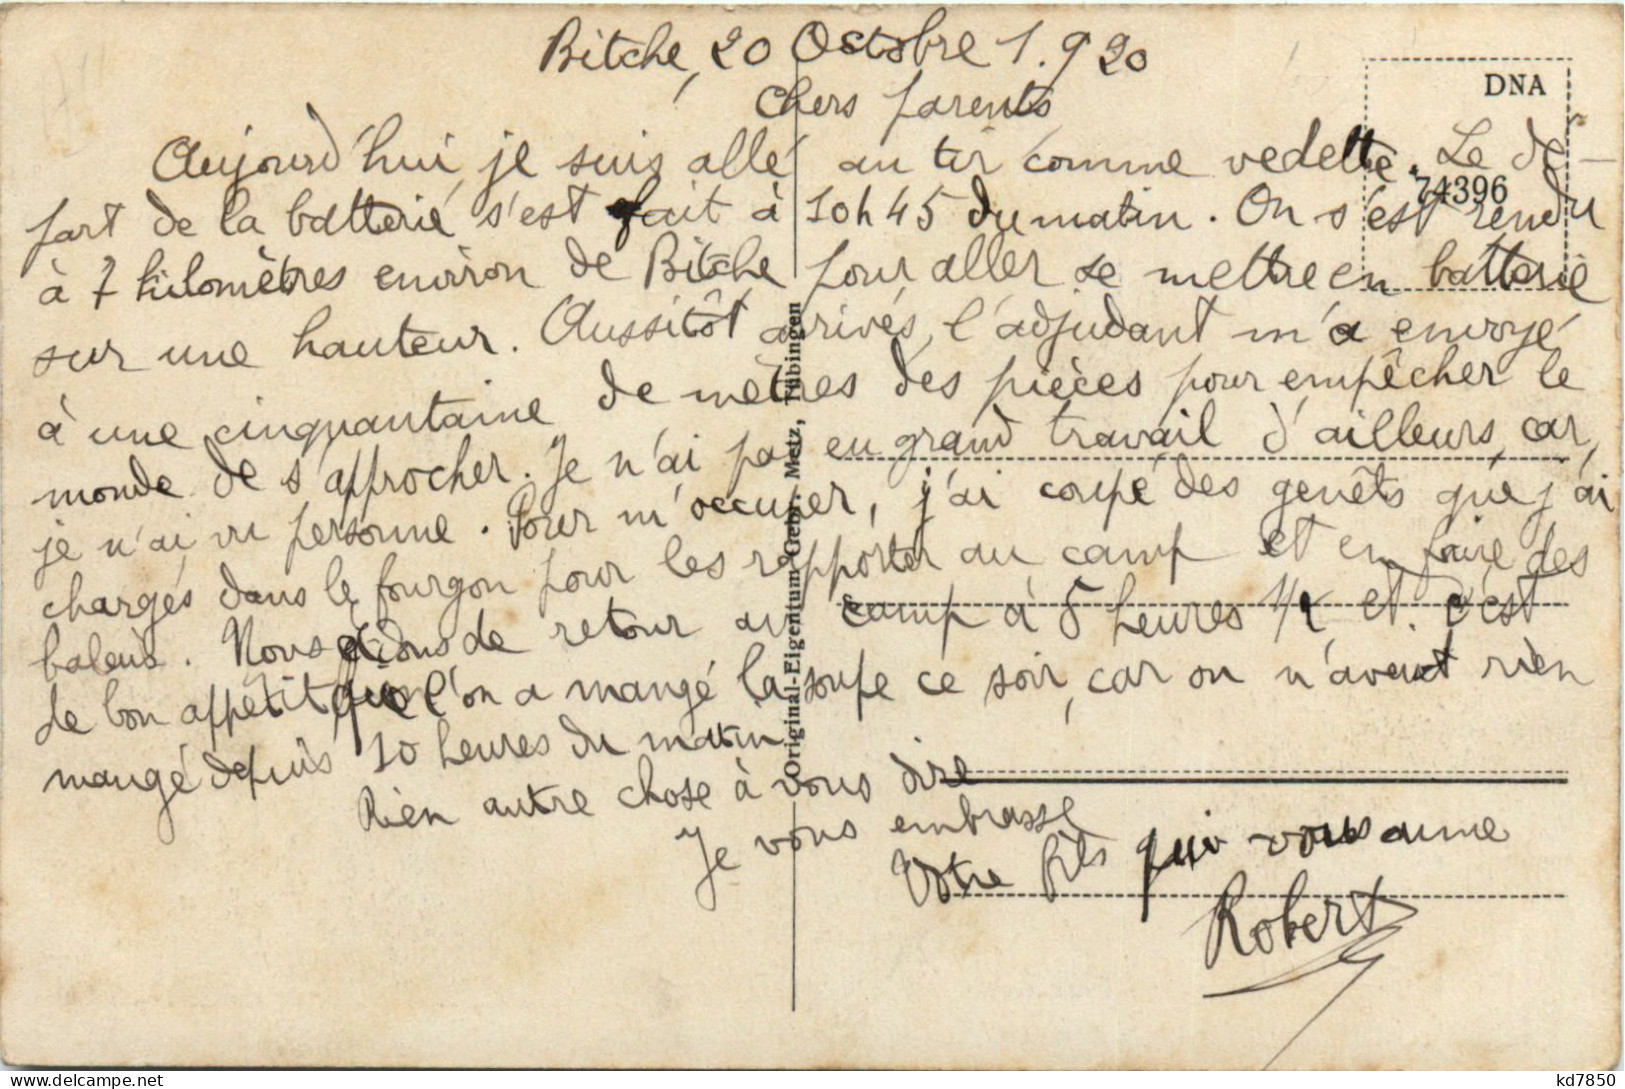 Bitche, 20 Octobre 1.920
Chers parents
DNA
74396
Aujourd'hui, je suis allé au tir comme vedette. Le dé-
part de la batterie s'est fait à 10h45 du matin. On s'est rendu
à 7 kilomètres environ de Bitche pour aller se mettre en batterie
sur une hauteur. Aussitôt arrivés, l'adjudant m'a envoyé
à une cinquantaine de mètres des pièces pour empêcher le
monde de s'approcher. Je n'ai pas eu grand travail d'ailleurs, car,
je n'ai vu personne. Pour m'occuper, j'ai coupé des genêts que j'ai
chargés dans le fourgon pour les rapporter au camp et en faire des
balais. Nous étions de retour au camp à 5 heures 1/2 et c'est
de bon appétit que l'on a mangé la soupe ce soir, car on n'avait rien
mangé depuis 10 heures du matin.
Rien autre chose à vous dire
Je vous embrasse
Votre fils qui vous aime
Robert
Original-Eigentum Gebr. Metz, Tübingen
kd7850